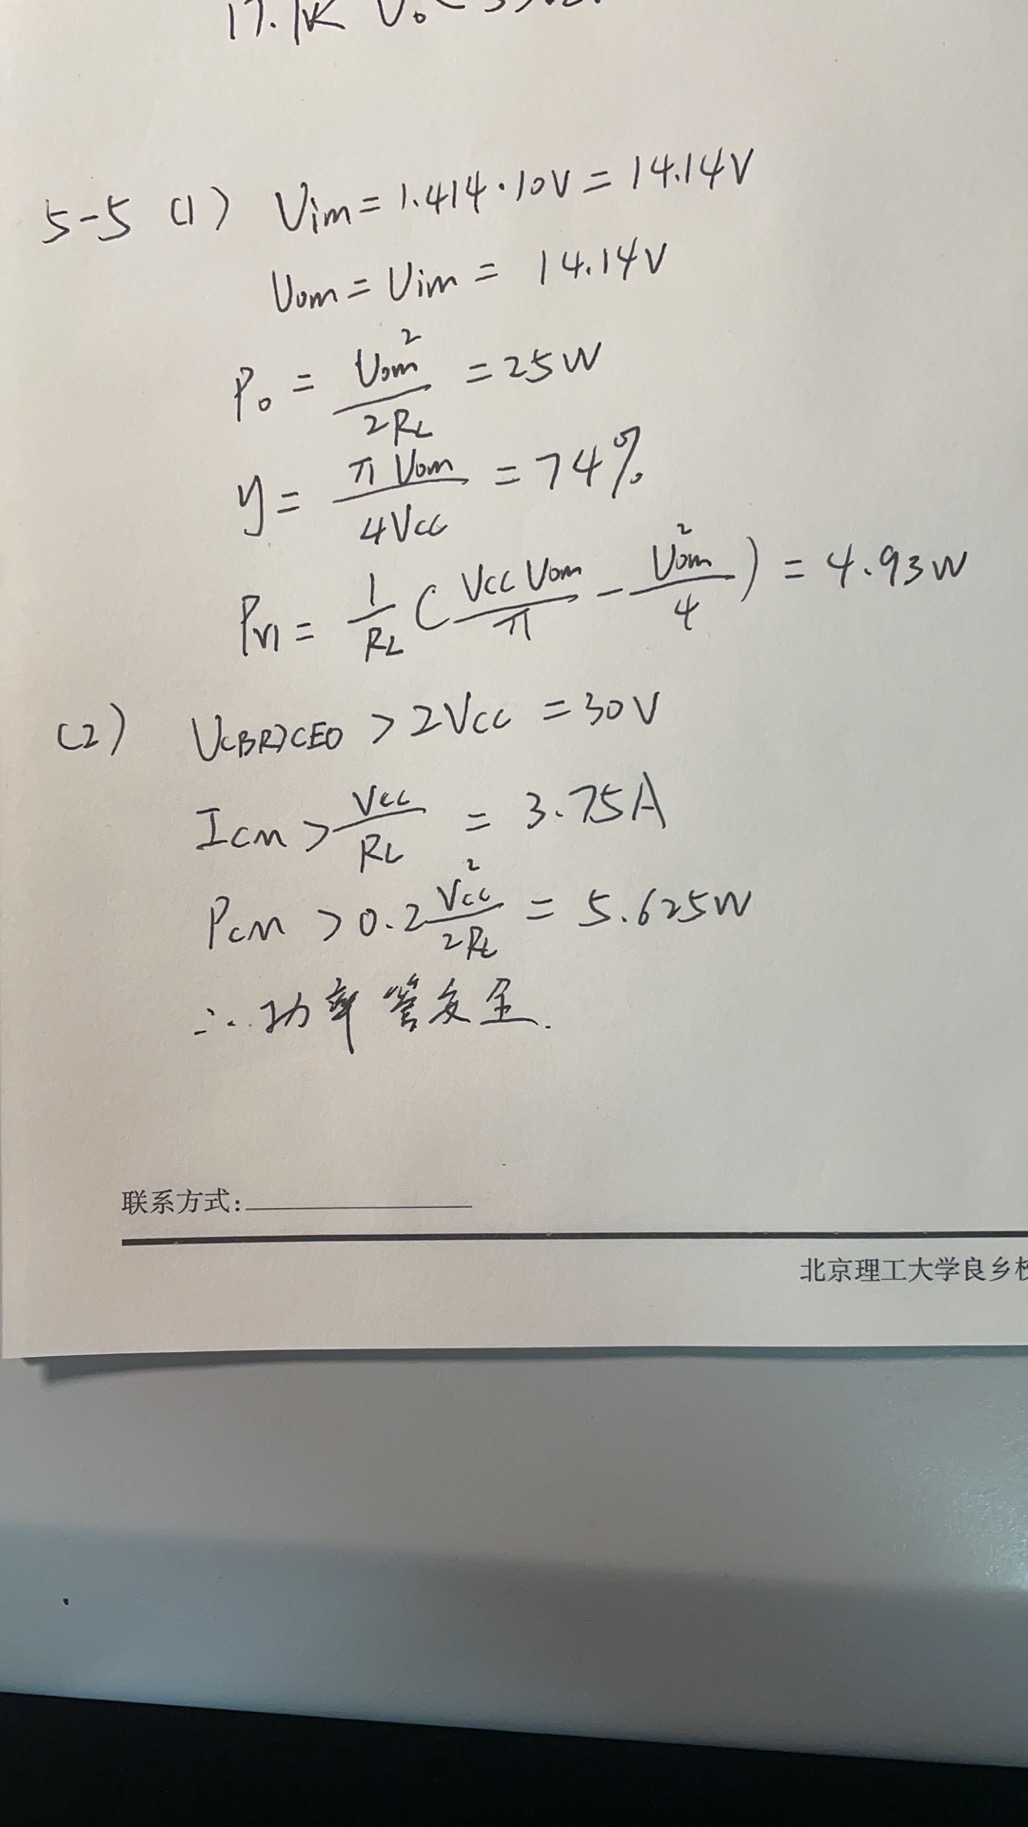 17.1K U₀
5-5 (1) Uim = 1.414·10V = 14.14V
Uom = Uim = 14.14V
P₀ = Uom² / 2RL = 25W
y = πUom / 4Vcc = 74%
PV1 = 1/RL (VccUom/π - Uom²/4) = 4.93W
(2) U(BR)CEO > 2Vcc = 30V
ICM > Vcc/RL = 3.75A
PCM > 0.2 Vcc²/2RL = 5.625W
∴ 功率管安全.
联系方式:
北京理工大学良乡